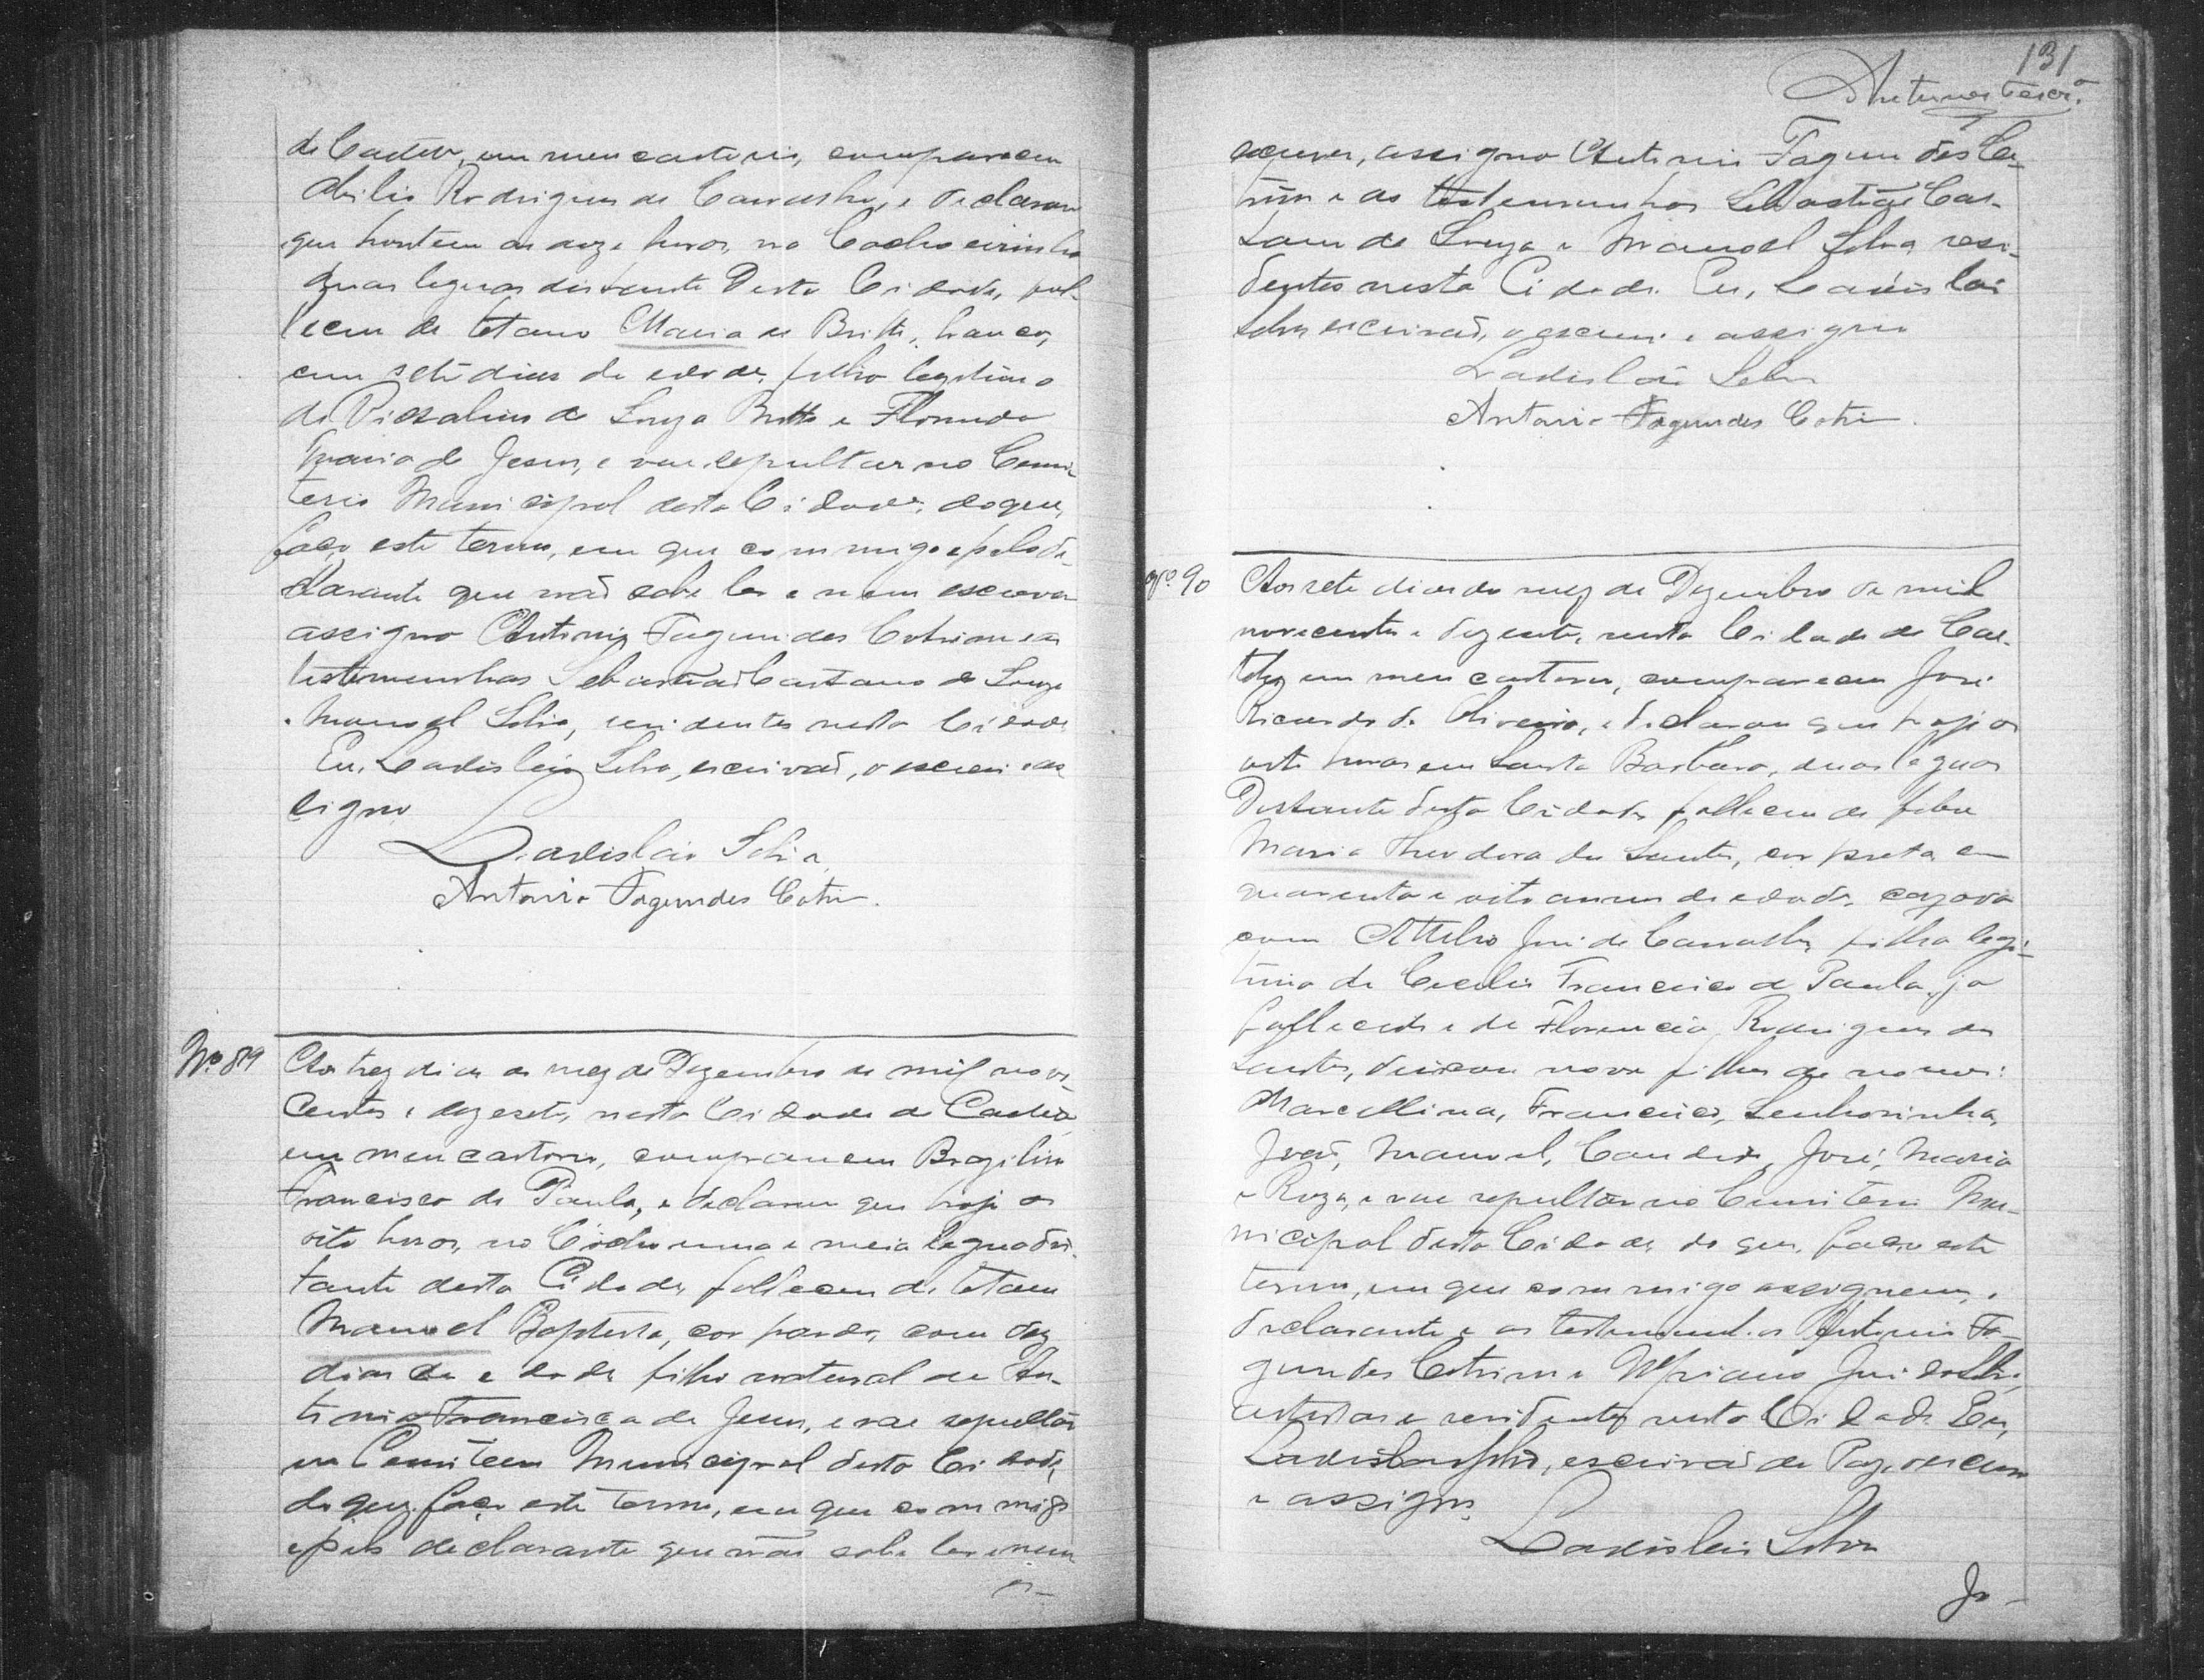 de Caeteté, em meu cartorio, compareceu
Abilio Rodrigues de Carvalho, e declarou
que hontem as doze horas, no Cachoeirinha
duas leguas distante desta Cidade, fal-
leceu de tetano Maria de Britto, branco,
com sete dias de edade, filho legitimo
de de Souza Britto e
Maria de Jesus, e vae sepultar no Cemi-
terio Municipal desta Cidade, do que,
faço este termo, em que commigo e pelo de-
clarante que não sabe ler e nem escrever
assigno Antonio Fagundes Cotrim e as
testemunhas Sebastião Caetano de Souza
e Manoel Silva, residentes nesta Cidade
Eu, Ladislau Silva, escrivão, o escrevi e as
signo
Ladislau Silva
Antonio Fagundes Cotrim.
Nº 89 Aos trez dias do mez de Dezembro de mil nove
centos e dezesete, nesta Cidade de Caeteté
em meu cartorio, compareceu Brazilino
Francisco de Paula, e declarou que hoje as
oito horas, no uma e meia legua dis-
tante desta Cidade, falleceu de tetano
Manoel Baptista, cor parda, com dez
dias de edade filho natural de An-
tonia Francisca de Jesus, e vae sepultar
no Cemiterio Municipal desta Cidade,
do que, faço este termo, em que commigo
e pelo declarante que não sabe ler e nem
es-
131
Antunes
escrever, assigno Antonio Fagundes Co-
trim e as testemunhas Sebastião Cae-
tano de Souza e Manoel Silva resi-
dentes nesta Cidade. Eu, Ladislau
Silva escrivão, o escrevi e assigno
Ladislau Silva
Antonio Fagundes Cotrim.
Nº 90 Aos sete dias do mez de Dezembro de mil
novecentos e dezesete, nesta Cidade de Cae-
teté, em meu cartorio, compareceu José
Ricardo de Oliveira, e declarou que hoje as
oito horas em Santa Barbara, duas leguas
Distante desta Cidade, falleceu de febre
Maria Theodora dos Santos, cor preta com
quarenta e oito annos de edade, cazada
com José de Carvalho, filha legi-
tima de Cecilio Francisco de Paula, já
fallecido e de Florencia Rodrigues dos
Santos, deixou nove filhos de nomes:
Marcellina, Francisco, Senhorinha,
João, Manoel, Candido, José, Maria
e Roza, e vae sepultar no Cemiterio Mu-
nicipal desta Cidade, do que, faço este
termo, em que commigo assignam, o
declarante e as testemunhas Antonio Fa-
gundes Cotrim e José da Silva,
artistas e residentes nesta Cidade. Eu,
Ladislau Silva, escrivão de Paz, o escrevi
e assigno.
Ladislau Silva
Jo-